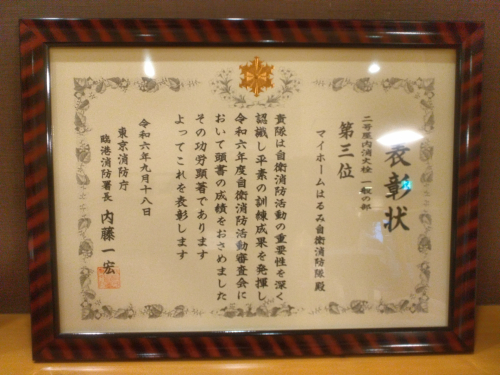 表彰状
二号屋内消火栓一般の部
第三位
マイホームはるみ自衛消防隊殿
貴隊は自衛消防活動の重要性を深く
認識し平素の訓練成果を発揮し
令和六年度自衛消防活動審査会に
おいて頭書の成績をおさめました
その功労顕著であります
よってこれを表彰します
令和六年九月十八日
東京消防庁
臨港消防署長 内藤一宏